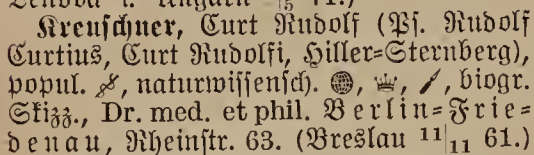 Kreuschner, Curt Rudolf (Ps. Rudolf
Curtius, Curt Rudolfi, Hiller-Sternberg),
popul. naturwissensch. biogr.
Skizz., Dr. med. et phil. Berlin-Frie-
denau, Rheinstr. 63. (Breslau 11|11 61.)